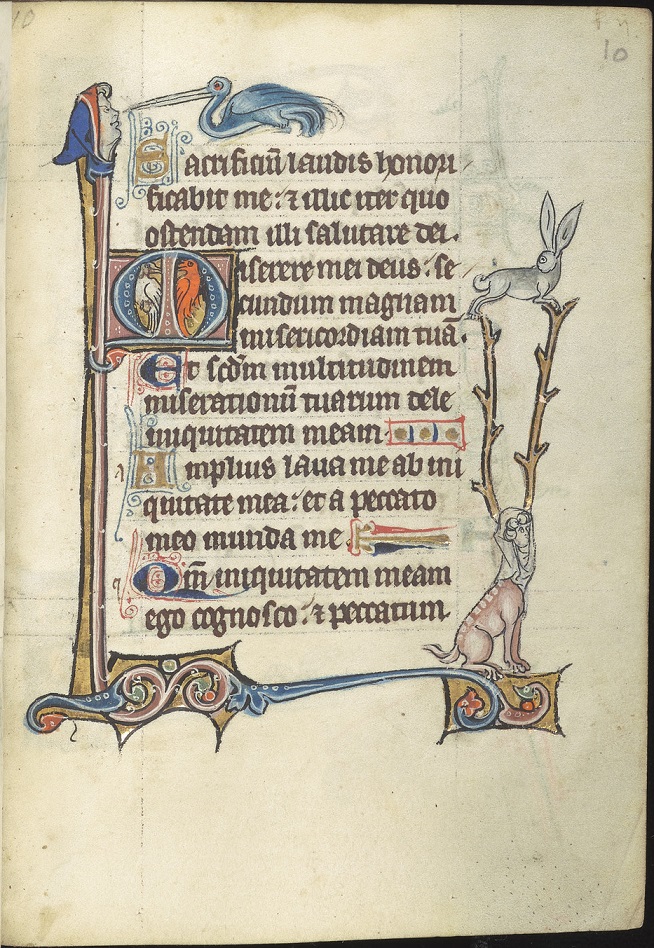 10
10
Sacrificiū laudis honori
ficabit me: ⁊ illic iter quo
ostendam illi salutare dei.
Miserere mei deus: se
cundum magnam
misericordiam tuā.
Et scđm multitudinem
miserationū tuarum dele
iniquitatem meam
Amplius laua me ab ini
quitate mea: et a peccato
meo munda me
Qm̄ iniquitatem meam
ego cognosco: ⁊ peccatum